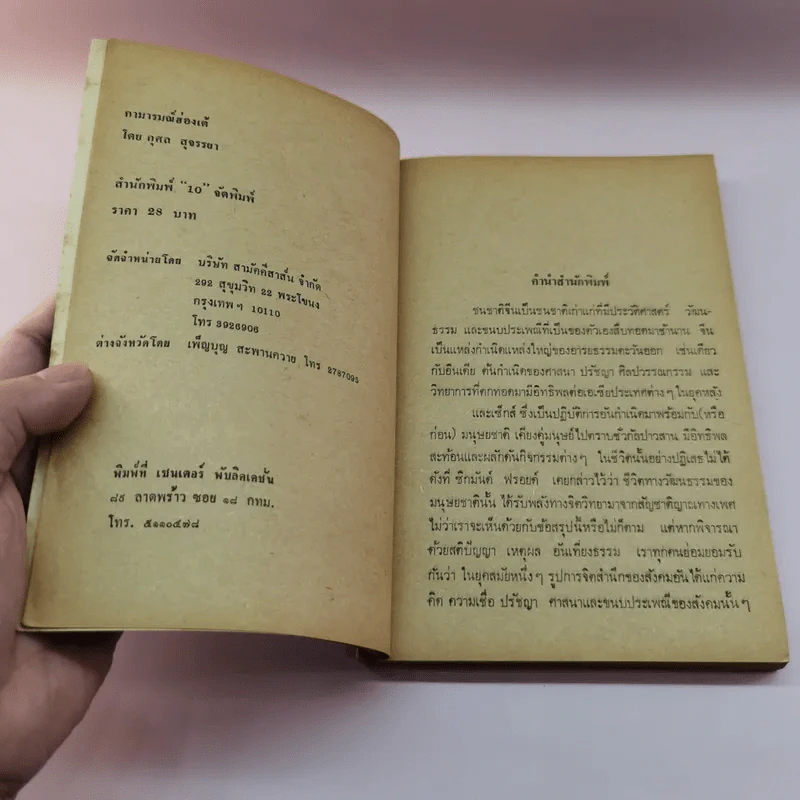 กามารมณ์ฮ่องเต้
โดย กุศล สุจรรยา
สำนักพิมพ์ "10" จัดพิมพ์
ราคา 28 บาท
จัดจำหน่ายโดย บริษัท สามัคคีสาส์น จำกัด
292 สุขุมวิท 22 พระโขนง
กรุงเทพฯ 10110
โทร 3926906
ต่างจังหวัดโดย เพ็ญบุญ สะพานควาย โทร 2787095
พิมพ์ที่ เซนเตอร์ พับลิคเคชัน
๘๙ ลาดพร้าว ซอย ๑๘ กทม.
โทร. ๕๑๑๐๕๗๘
คำนำสำนักพิมพ์
ชนชาติจีนเป็นชนชาติเก่าแก่ที่มีประวัติศาสตร์ วัฒน-
ธรรม และขนบประเพณีที่เป็นของตัวเองสืบทอดมาช้านาน จีน
เป็นแหล่งกำเนิดแหล่งใหญ่ของอารยธรรมตะวันออก เช่นเดียว
กับอินเดีย ต้นกำเนิดของศาสนา ปรัชญา ศิลปวรรณกรรม และ
วิทยาการที่ตกทอดมามีอิทธิพลต่อเอเซียประเทศต่างๆ ในยุคหลัง
และเซ็กส์ ซึ่งเป็นปฏิบัติการอันกำเนิดมาพร้อมกับ(หรือ
ก่อน) มนุษยชาติ เคียงคู่มนุษย์ไปตราบชั่วกัลปาวสาน มีอิทธิพล
สะท้อนและผลักดันกิจกรรมต่างๆ ในชีวิตนั้นอย่างปฏิเสธไม่ได้
ดังที่ ซิกมันด์ ฟรอยด์ เคยกล่าวไว้ว่า ชีวิตทางวัฒนธรรมของ
มนุษยชาตินั้น ได้รับพลังทางจิตวิทยามาจากสัญชาติญาณทางเพศ
ไม่ว่าเราจะเห็นด้วยกับข้อสรุปนี้หรือไม่ก็ตาม แต่หากพิจารณา
ด้วยสติปัญญา เหตุผล อันเที่ยงธรรม เราทุกคนย่อมยอมรับ
กันว่า ในยุคสมัยหนึ่งๆ รูปการจิตสำนึกของสังคมอันได้แก่ความ
คิด ความเชื่อ ปรัชญา ศาสนาและขนบประเพณีของสังคมนั้นๆ